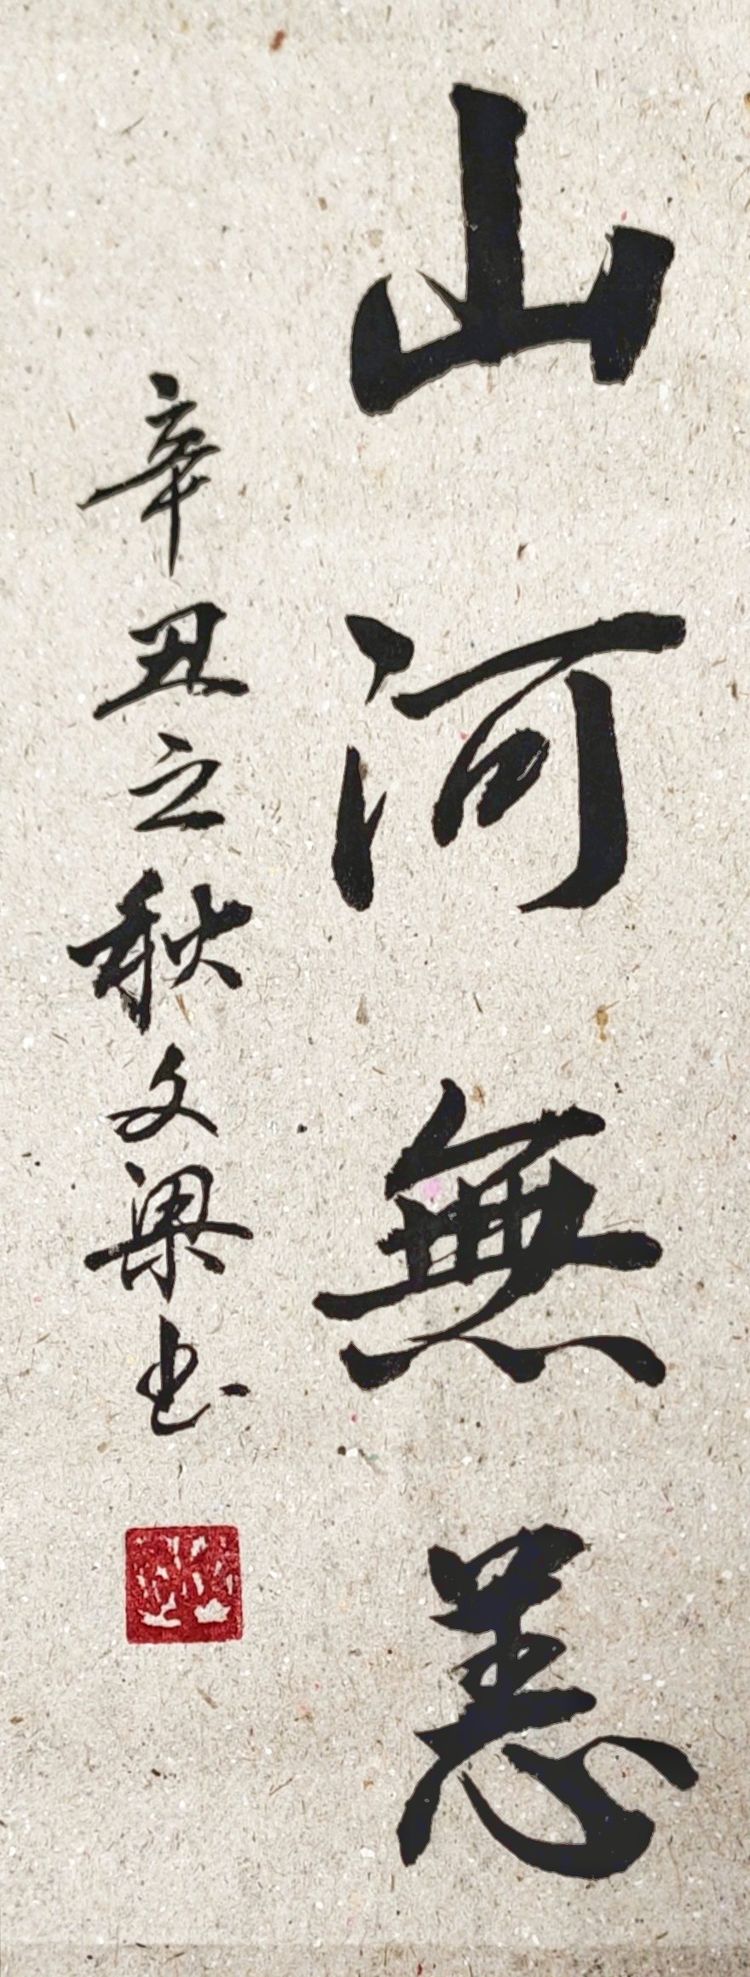 山河無恙
辛丑之秋文梁书